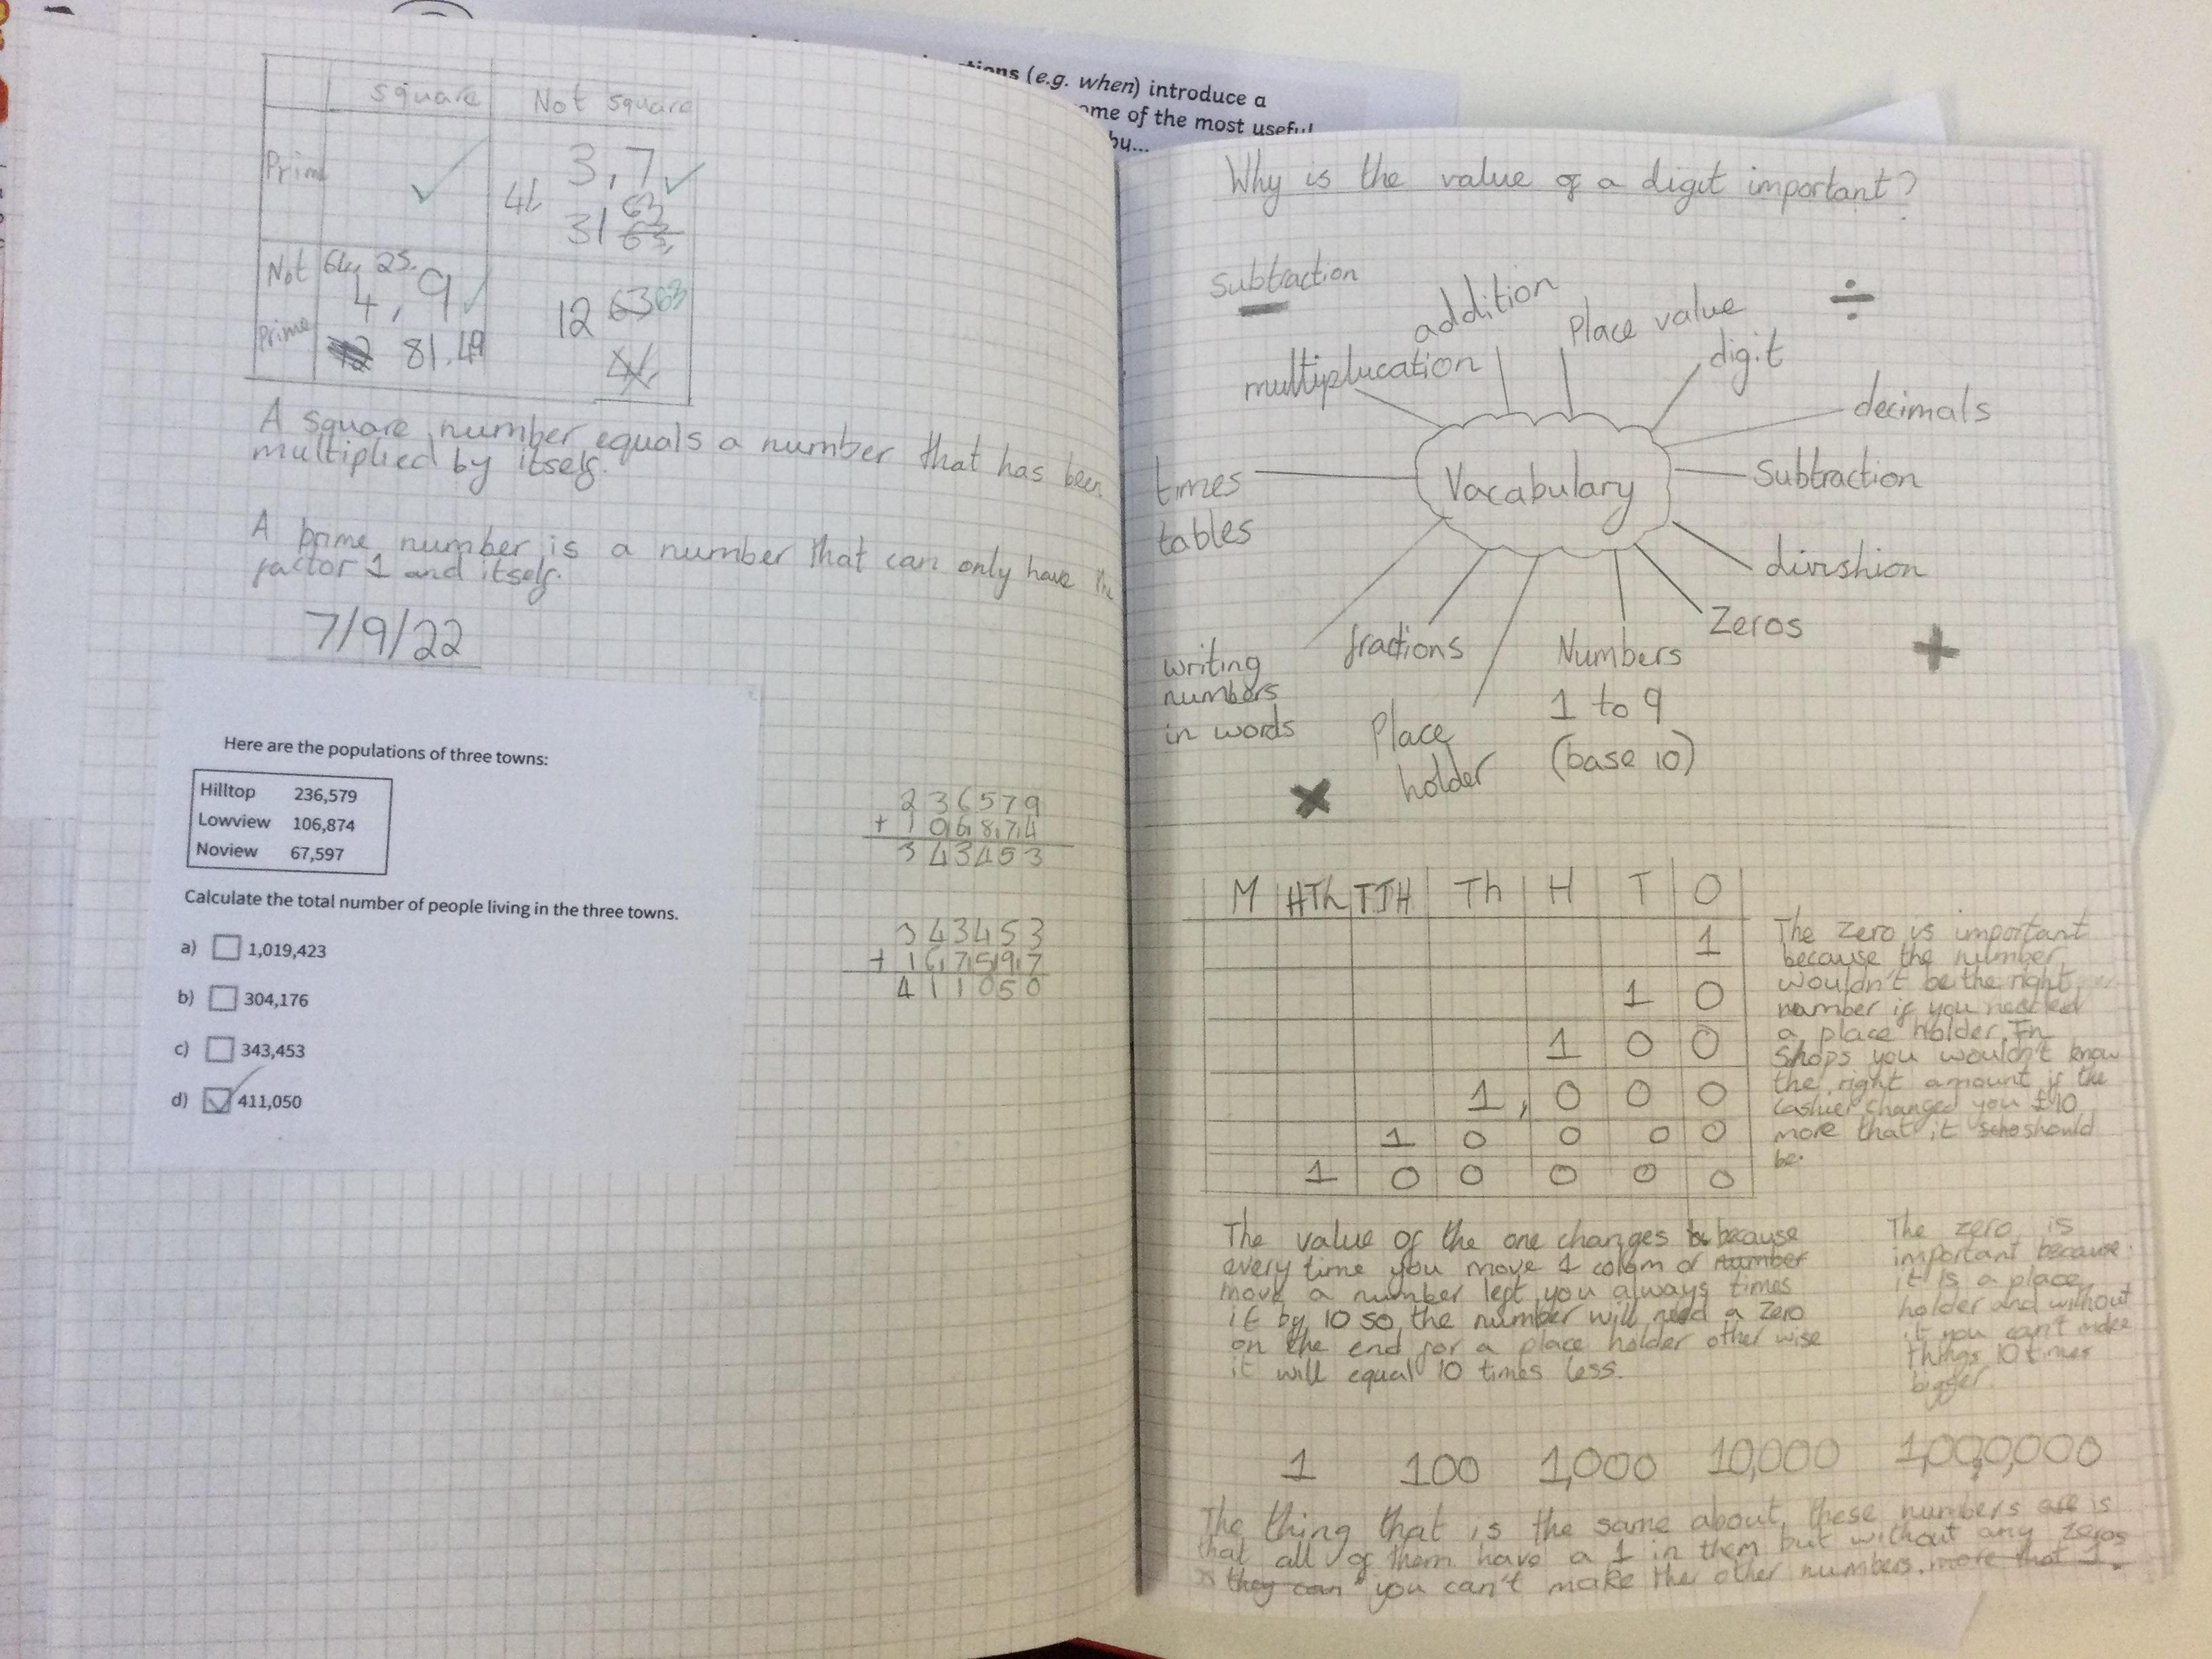 tions (e.g. when) introduce a
ome of the most useful
by...
square Not square
Prime 3, 7
41
31 63
63,
Not Prime 64, 25.
4, 9
81. 49
12 63 63
A square number equals a number that has been
multiplied by itself.
A prime number is a number that can only have the
factor 1 and itself.
7/9/22
Here are the populations of three towns:
Hilltop 236,579
Lowview 106,874
Noview 67,597
Calculate the total number of people living in the three towns.
a) 1,019,423
b) 304,176
c) 343,453
d) 411,050
236579
+ 106874
343453
343453
+ 167597
411050
Why is the value of a digit important?
Subtraction
−
addition
Place value
÷
multiplucation
digit
decimals
times
tables
Vocabulary
Subtraction
divishion
Zeros
+
writing
numbers
in words
fractions
Place
holder
Numbers
1 to 9
(base 10)
×
M HTh TTH Th H T O
1
1 0
1 0 0
1, 0 0 0
1 0 0 0 0
1 0 0 0 0 0
The Zero is important
because the number
wouldn't be the right
number if you needed
a place holder. In
Shops you wouldn't know
the right amount if the
cashier changed you £10
more that it scho should
be.
The value of the one changes b because
every time you move 1 colom or number
move a number left you always times
it by 10 so the number will need a Zero
on the end for a place holder other wise
it will equal 10 times less.
The zero is
important because
it is a place
holder and without
it you can't make
things 10 times
bigger
1 100 1,000 10,000 1,000,000
The thing that is the same about these numbers are is
that all of them have a 1 in them but without any zeros
they can you can't make the other numbers. more that 1.